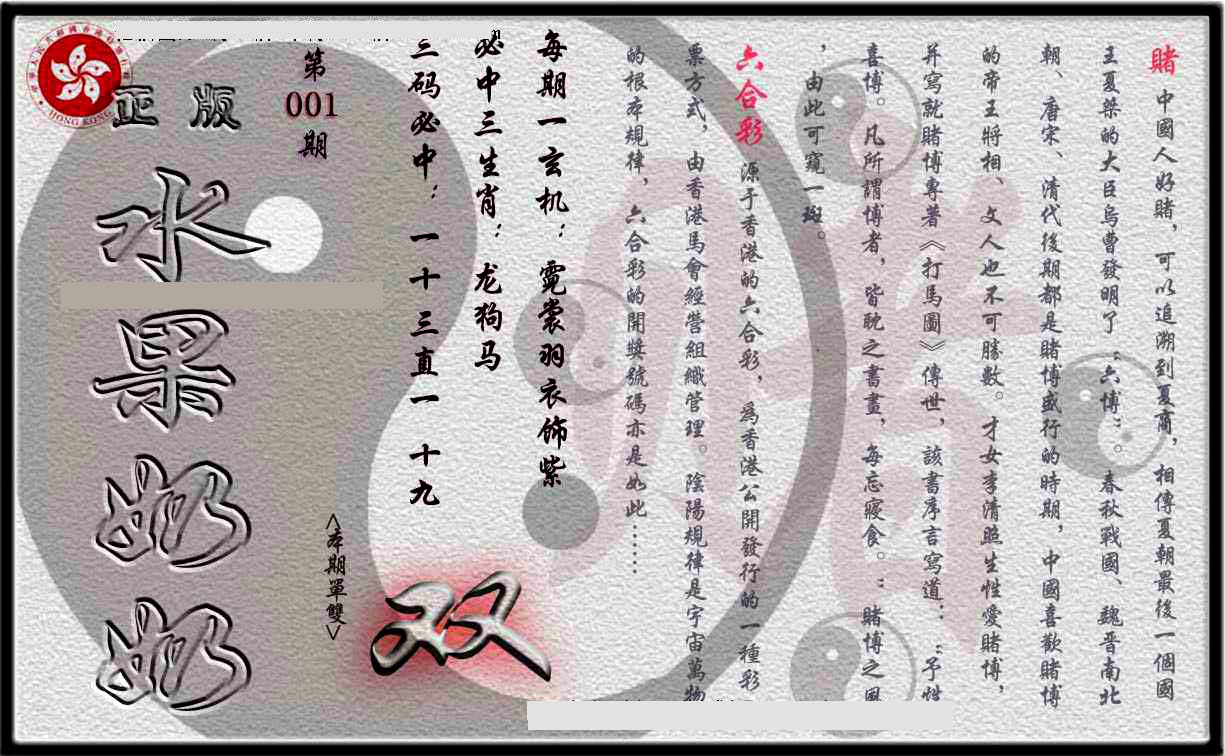 賭 中國人好賭，可以追溯到夏商，相傳夏朝最後一個國
王夏桀的大臣烏曹發明了“六博”。春秋戰國、魏晉南北
朝、唐宋、清代後期都是賭博盛行的時期，中國喜歡賭博
的帝王將相、文人也不可勝數。才女李清照生性愛賭博，
并寫就賭博專著《打馬圖》傳世，該書序言寫道：“予性
喜博。凡所謂博者，皆耽之書畫，每忘寢食。”賭博之風
，由此可窺一斑。
六合彩 源于香港的六合彩，為香港公開發行的一種彩
票方式，由香港馬會經營組織管理。陰陽規律是宇宙萬物
的根本規律，六合彩的開獎號碼亦是如此……
每期一玄机：霓裳羽衣飾紫
必中三生肖：龙狗马
三码必中：一十三直一 十九
第001期
<本期單雙>
双
正版
水果奶奶
HONG KONG